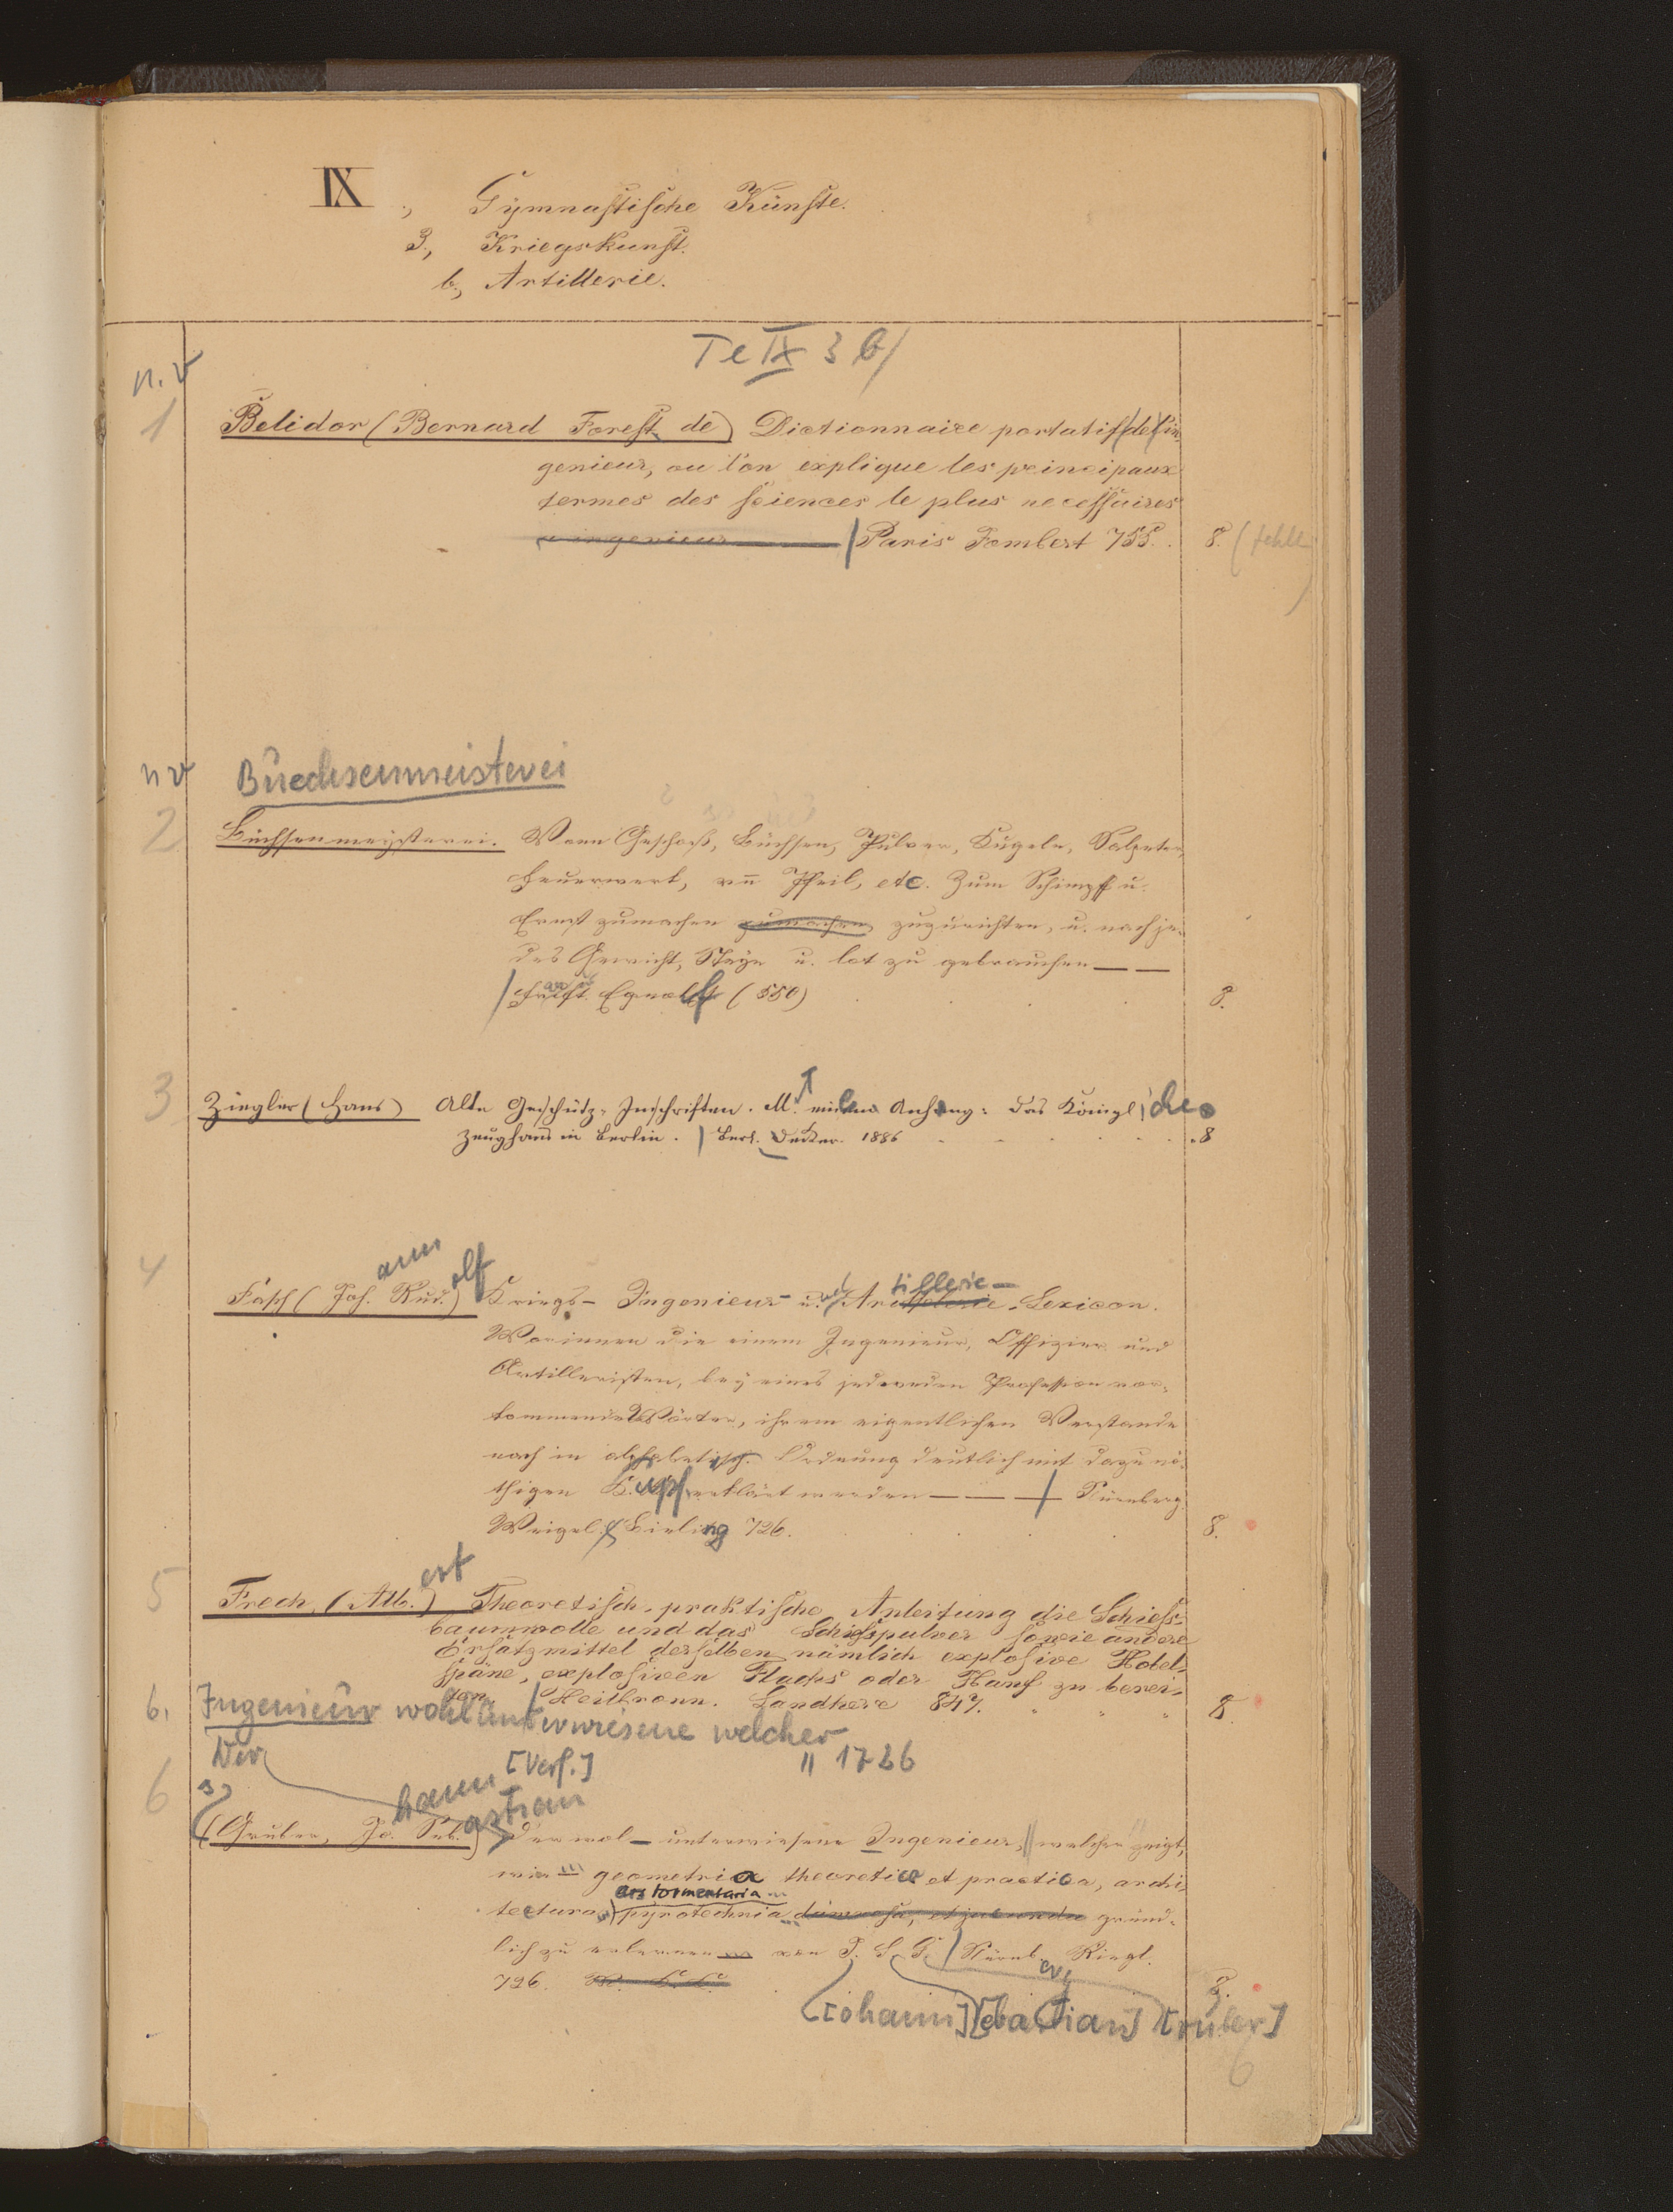 IX., Gymnastische Künste.
3., Kriegskunst.
b., Artillerie.
Te IX 3 b/
n. v
1 Belidor (Bernard Forest de) Dictionnaire portatif de l'in-
genieur, ou l'on explique les principaux
termes des sciences le plus necessaires
a ingenieur — / Paris Jombert 755. 8. (fehlt)
n v Buechsenmeisterei
2 Büchsenmeysterei. Vonn Geschoß, Büchsen, Pulver, Kugeln, Salpeter,
Feuerwerk, vnn Pfeil, etc. Zum Schimpff u.
Ernst zumachen zumachen zuzurichten, u. nach je-
des Gewicht, Steyn u. lot zu gebrauchen — —
/ Egnolff (550) 8.
3 Ziegler (Hans) Alte Geschütz-Inschriften. M. einem Anhang: Das Königliche
Zeughaus in Berlin. / Berl. Decker. 1886 8
4 Fäsch (Joh.ann Rud.olf) Kriegs- Ingenieur- u.nd Artillerie- Lexicon.
Worinnen die einem Ingenieur, Offizier und
Artilleristen, bey eines jedweden Profession vor-
kommende Wörter, ihrem eigentlichen Verstande
nach in alphabetisch. Ordnung deutlich mit dazu nö-
thigen Kupf. erklärt werden — — / Nürnberg.
Weigel. Bieling 726. 8.
5 Frech, (Alb.ert) Theoretisch-praktische Anleitung die Schiess-
baumwolle und das Schiesspulver sowie andere
Ersatzmittel derselben nämlich explosive Hobel-
späne, explosiven Flachs oder Hanf zu berei-
ten / Heilbronn. Landherr 847. 8.
6. Ingenieur wohl unterwiesene welcher
Der [Verf.] " 1726
6 (Gruber, Jo.hann Seb.astian) Der wol- unterwiesene Ingenieur, || welcher zeigt,
wie geometria theoretica et practica, archi-
ars tormentaria
tectura, pyrotechnia gründ-
lich zu erlernen von J. S. G. / Nürnb.erg Riegl.
726. 8.
[ohann] [ebastian] [ruber]
6